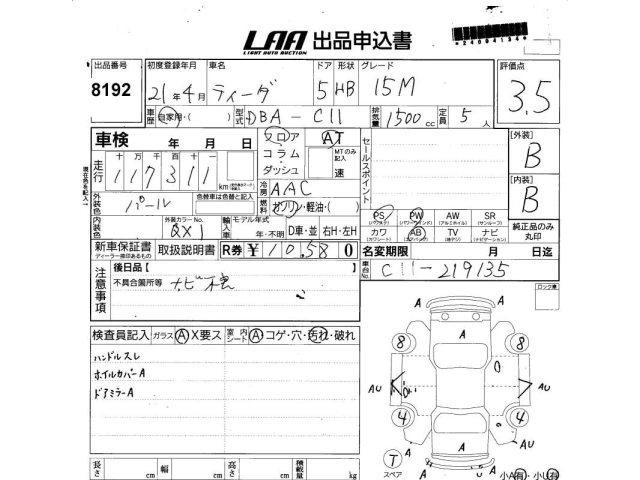 LAA 出品申込書
LIGHT AUTO AUCTION
*24094134*
出品番号 初度登録年月 車名 ドア 形状 グレード 評価点
8192 21年4月 ティーダ 5 HB 15M 3.5
車歴 自家用・( ) 型式 DBA-C11 排気量 1500cc 定員 5人
車検 年 月 日 フロア AT セールスポイント [外装]
コラム MTのみ記入 B
ダッシュ 速
走行 十万千百十一
117311 km
冷房 AAC [内装]
外装色 パール 色替車は色替と記入 燃料 ガソリン・軽油・( ) B
PS PW AW SR
(パワステ) (パワーウィンドウ) (アルミホイル) (サンルーフ)
外装カラーNo. QX1 輸入車 モデル年式 年・不明 D車・並 右H・左H
カワ AB TV ナビ 純正品のみ丸印
(レザーシート) (エアバック) (地デジ) (ナビゲーション)
新車保証書 取扱説明書 R券 ¥10,580 名変期限 月 日迄
ディーラー捺印あるもの
注意事項 後日品【 】 車台No. C11-219135
不具合箇所等 ナビ壊
ロック車
検査員記入 ガラス A X要ス 室内 シート 内 A コゲ・穴・汚れ・破れ
ハンドルスレ
ホイルカバーA
ドアミラーA
A
8 A 8
AU AU
4 4
A A AU
T A A
スペア
小A有・小U有
長さ cm 幅 cm 高さ cm 積載量 kg